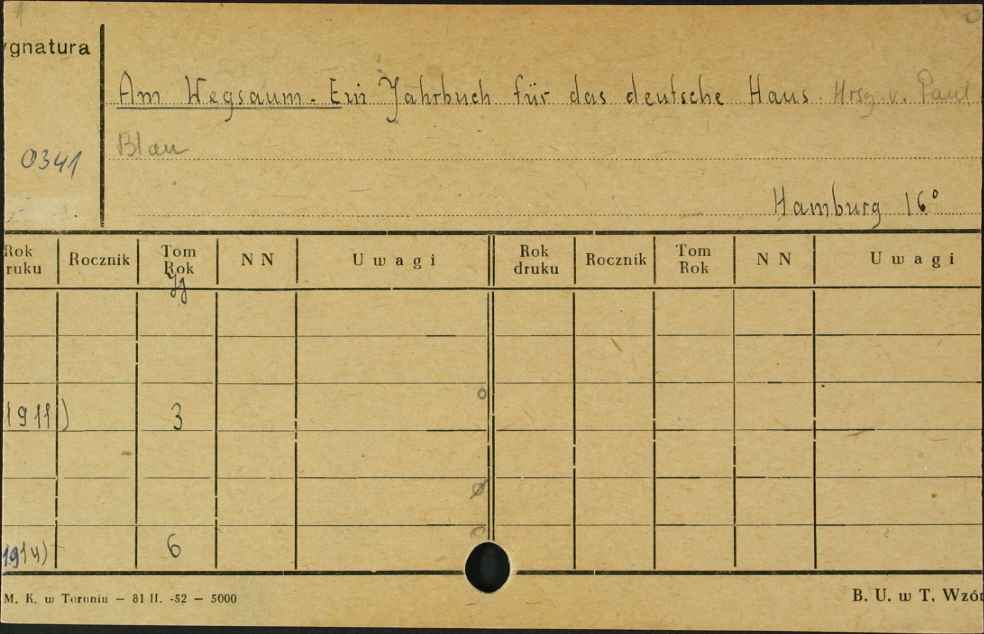 ygnatura
Am Wegsaum. Ein Jahrbuch für das deutsche Haus. Hrsg. v. Paul
Blau
0341
Hamburg 16°
Rok ruku Rocznik Tom Rok N N Uwagi Rok druku Rocznik Tom Rok N N Uwagi
Jg
1911) 3
1914) 6
M. K. w Toruniu — 81 II. -52 — 5000
B. U. w T. Wzó